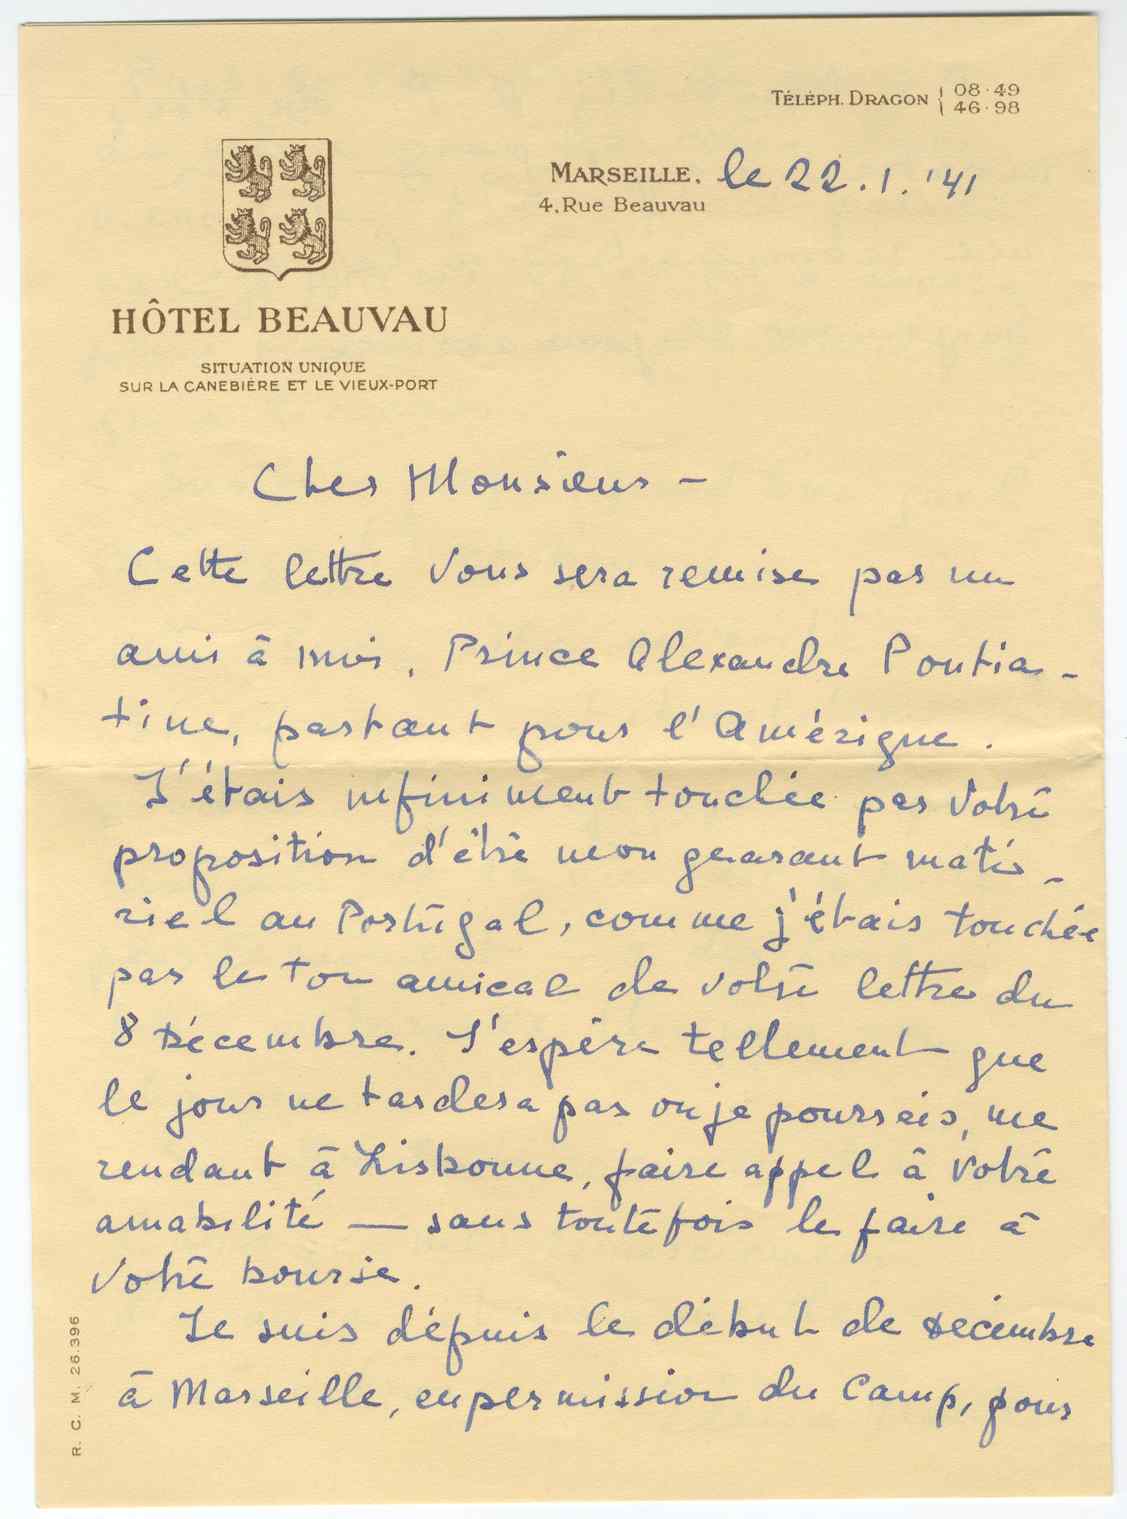 TÉLÉPH. DRAGON { 08·49
46·98
MARSEILLE, le 22.1.'41
4, Rue Beauvau
HÔTEL BEAUVAU
SITUATION UNIQUE
SUR LA CANEBIÈRE ET LE VIEUX-PORT
Cher Monsieur –
Cette lettre Vous sera remise par un
ami à moi, Prince Alexandre Poutia-
tine, partant pour l'Amérique.
J'étais infiniment touchée par Votre
proposition d'être mon guarant maté-
riel au Portugal, comme j'étais touchée
par le ton amical de votre lettre du
8 Décembre. J'espère tellement que
le jour ne tardera pas ou je pourrais, me
rendant à Lisbonne, faire appel à Votre
amabilité — sans toutefois le faire à
Votre bourse.
Je suis dépuis le début de Décembre
à Marseille, en permission du Camp, pour
R. C. M. 26.396